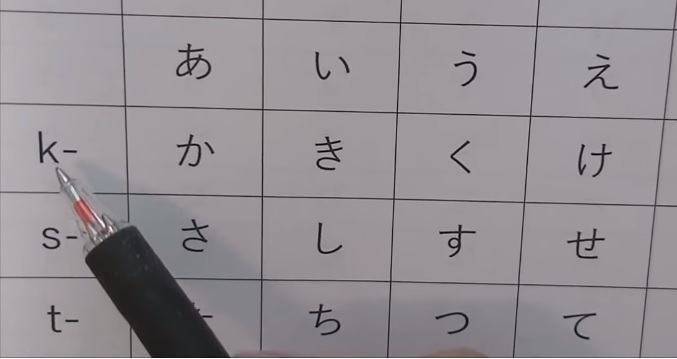 あ い う え
k- か き く け
s- さ し す せ
t- ち つ て